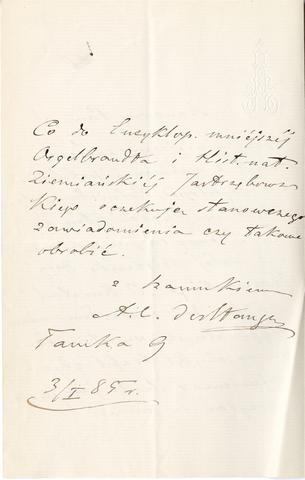 Co do Encyklop. mniejszéj
Orgelbranda i Hist. nat.
Ziemiańskiéj Jastrzębows
kiego oczekuję stanowczego
zawiadomienia czy takowe
obrobić.
z szacunkiem
A. C.
Tamka 9
3/I 85 r.